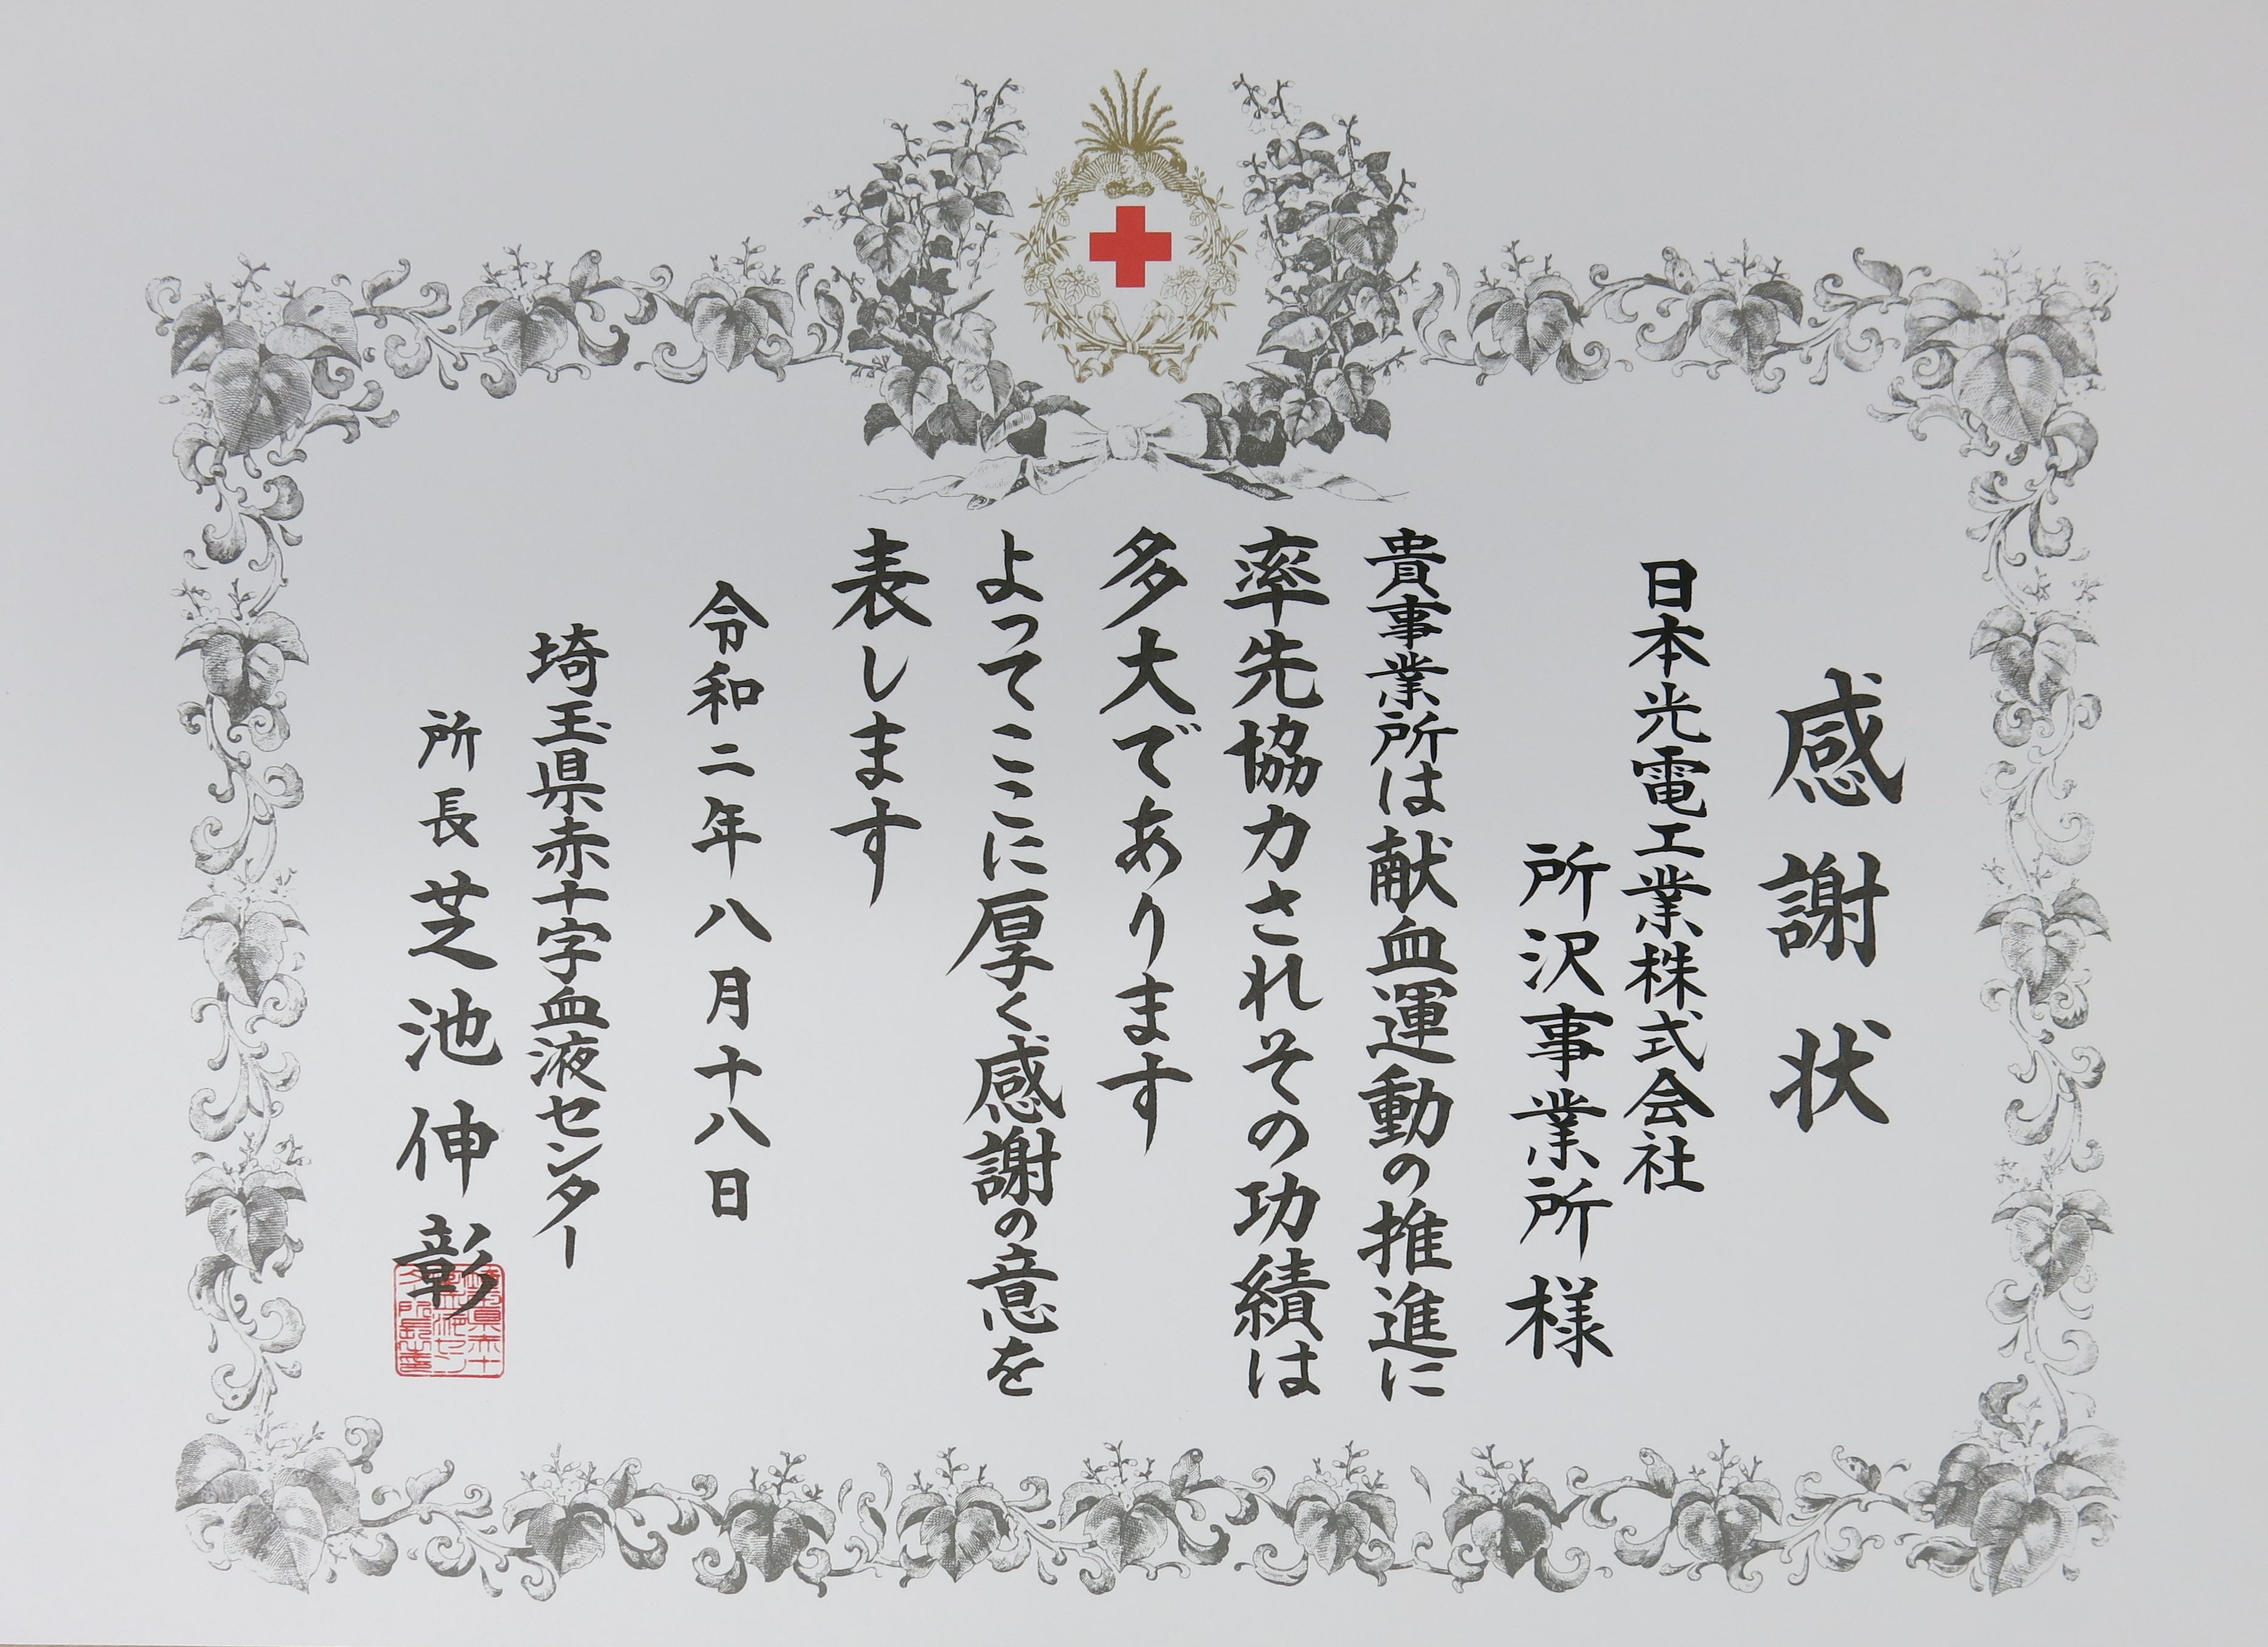 感謝状
日本光電工業株式会社
所沢事業所様
貴事業所は献血運動の推進に
率先協力されその功績は
多大であります
よってここに厚く感謝の意を
表します
令和二年八月十八日
埼玉県赤十字血液センター
所長芝池伸彰